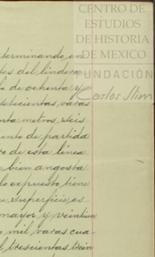 CENTRO DE
ESTUDIOS
DE HISTORIA
DE MEXICO
FUNDACIÓN
Carlos Slim
terminando en
del lindero
de ochenta y
setecientas varas
metros, seis
de partida
de esta linea
bien angosta
expuesto tiene
superficie, es
mayor, y veintiun
mil varas cua
trescientas trein